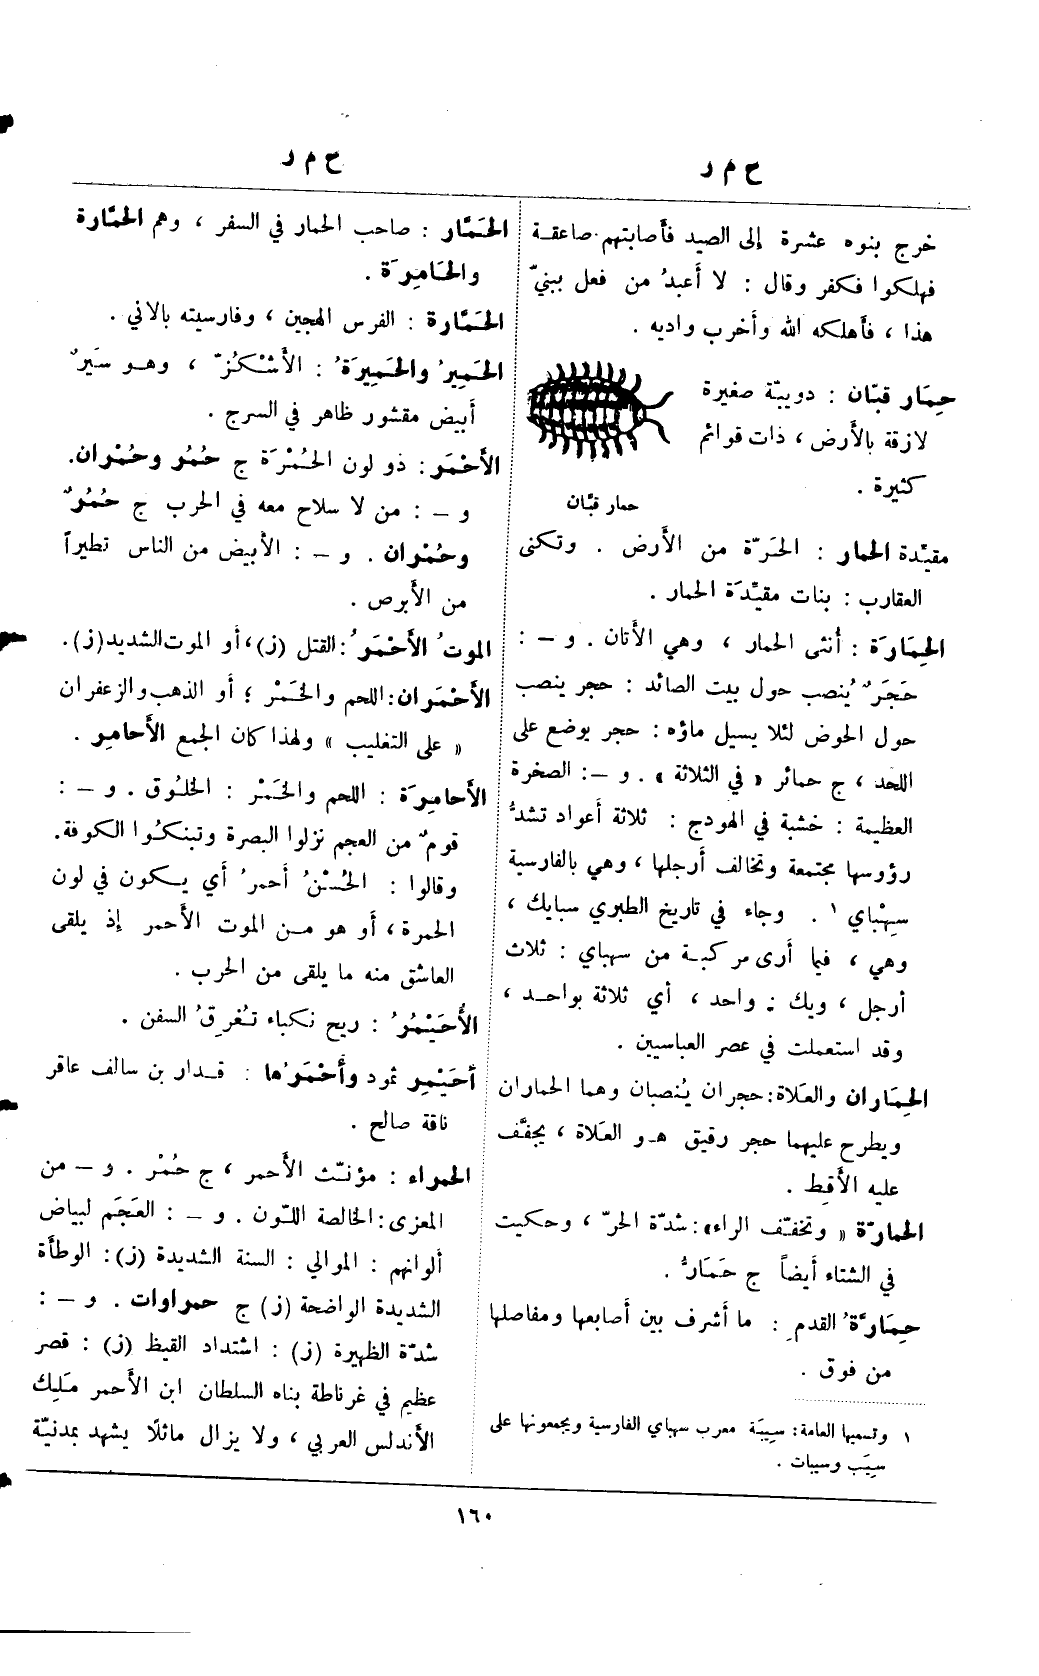 ح م ر
خرج بنوه عشرة إلى الصيد فأصابتهم صاعقة
فهلكوا فكفر وقال : لا أعبدُ من فعل ببنيّ
هذا ، فأهلكه الله وأخرب واديه .
حِمَار قبّان : دويبّة صغيرة
لازقة بالأرض ، ذات قوائم
كثيرة .
حمار قبّان
مقيّدة الحمار : الحَرّة من الأرض . وتكنى
العقارب : بنات مقيّدَة الحمار .
الحِمَارَة : أُنثى الحمار ، وهي الأتان . و – :
حَجَرٌ يُنصب حول بيت الصائد : حجر ينصب
حول الحوض لئلا يسيل ماؤه : حجر يوضع على
اللحد ، ج حمائر « في الثلاثة » . و –: الصخرة
العظيمة : خشبة في الهودج : ثلاثة أعواد تشدُّ
رؤوسها مجتمعة وتخالف أرجلها ، وهي بالفارسية
سِهْباي ١ . وجاء في تاريخ الطبري سبايك ،
وهي ، فيما أرى مركبة من سهباي : ثلاث
أرجل ، ويك : واحد ، أي ثلاثة بواحد ،
وقد استعملت في عصر العباسيين .
الحِمَاران والعَلاة : حجران يُنصبان وهما الحماران
ويطرح عليهما حجر رقيق هو العَلاة ، يجفَّف
عليه الأَقِط .
الحمارّة « وتخفّف الراء»: شدّة الحرّ ، وحكيت
في الشتاء أيضاً ج حَمَارُّ .
حِمَارَّةُ القدمِ : ما أشرف بين أصابعها ومفاصلها
من فوق .
١ وتسميها العامة: سيبَة معرب سهباي الفارسية ويجمعونها على
سِيَب وسيبات .
ح م ر
الحَمَّار : صاحب الحمار في السفر ، وهم الحمَّارة
والحَامِرَة .
الحَمَّارة : الفرس الهجين ، وفارسيته بالاني .
الحَمِيرُ والحَمِيرَةُ : الأَشْكُزّ ، وهو سَيرٌ
أبيض مقشور ظاهر في السرج .
الأَحْمَر : ذو لون الحُمْرَة ج حُمُر وحُمْران.
و – : من لا سلاح معه في الحرب ج حُمُرٌ
وحُمْران . و – : الأبيض من الناس تطيراً
من الأبرص .
الموتُ الأَحْمَرُ : القتل (ز)، أو الموت الشديد (ز) .
الأَحْمَران : اللحم والخَمْر ؛ أو الذهب والزعفران
« على التغليب » ولهذا كان الجمع الأَحامِر .
الأَحامِرَة : اللحم والخَمْر : الخلُوق . و – :
قومٌ من العجم نزلوا البصرة وتبنكُوا الكوفة.
وقالوا : الحُسْنُ أحمرُ أي يكون في لون
الحمرة ، أو هو من الموت الأحمر إذ يلقى
العاشق منه ما يلقى من الحرب .
الأُحَيْمُرُ : ريح نكباء تُغرِقُ السفن .
أحَيْمِر ثمود وأَحْمَرُها : قدار بن سالف عاقر
ناقة صالح .
الحمراء : مؤنّث الأحمر ، ج حُمْر . و – من
المعزى : الخالصة اللّون . و – : العَجَم لبياض
ألوانهم : الموالي : السنة الشديدة (ز) : الوطأة
الشديدة الواضحة (ز) ج حمراوات . و – :
شدّة الظهيرة (ز) : اشتداد القيظ (ز) : قصر
عظيم في غرناطة بناه السلطان ابن الأحمر مَلِك
الأندلس العربي ، ولا يزال ماثلًا يشهد بمدنيّة
١٦٠